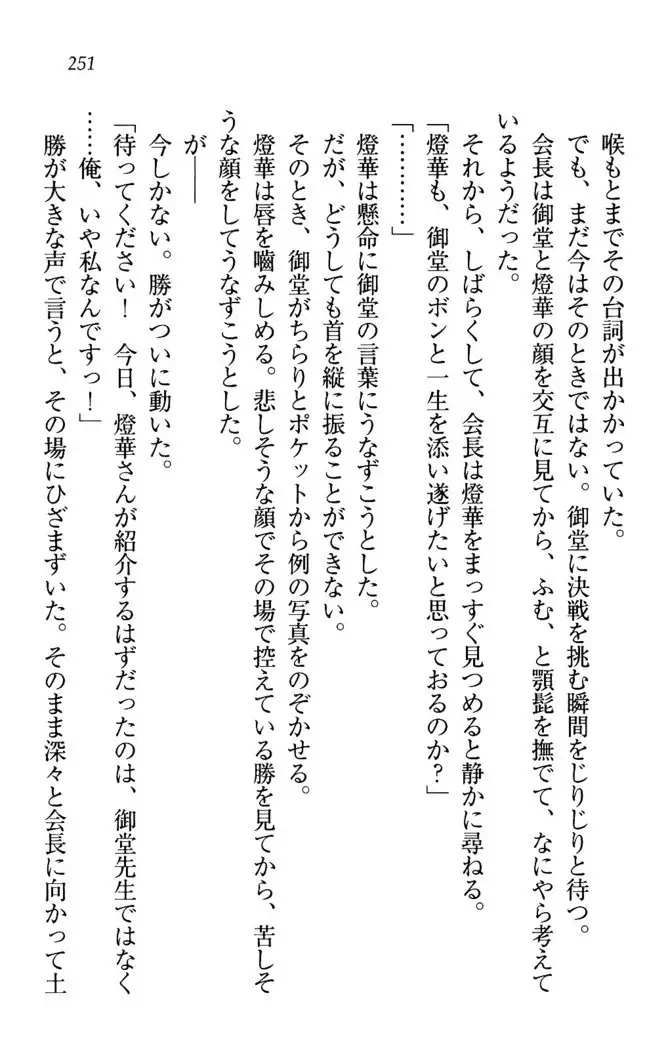 251
喉もとまでその台詞が出かかっていた。
でも、まだ今はそのときではない。御堂に決戦を挑む瞬間をじりじりと待つ。
会長は御堂と燈華の顔を交互に見てから、ふむ、と顎髭を撫でて、なにやら考えて
いるようだった。
それから、しばらくして、会長は燈華をまっすぐ見つめると静かに尋ねる。
「燈華も、御堂のボンと一生を添い遂げたいと思っておるのか？」
「…………」
燈華は懸命に御堂の言葉にうなずこうとした。
だが、どうしても首を縦に振ることができない。
そのとき、御堂がちらりとポケットから例の写真をのぞかせる。
燈華は唇を嚙みしめる。悲しそうな顔でその場で控えている勝を見てから、苦しそ
うな顔をしてうなずこうとした。
が――
今しかない。勝がついに動いた。
「待ってください！　今日、燈華さんが紹介するはずだったのは、御堂先生ではなく
……俺、いや私なんですっ！」
勝が大きな声で言うと、その場にひざまずいた。そのまま深々と会長に向かって土